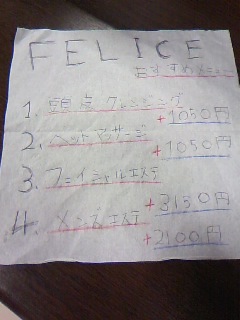 FELICE
おすすめメニュー
1. 頭皮クレンジング
+1050円
2. ヘッドマッサージ
+1050円
3. フェイシャルエステ
+3150円
4. メンズエステ
+2100円